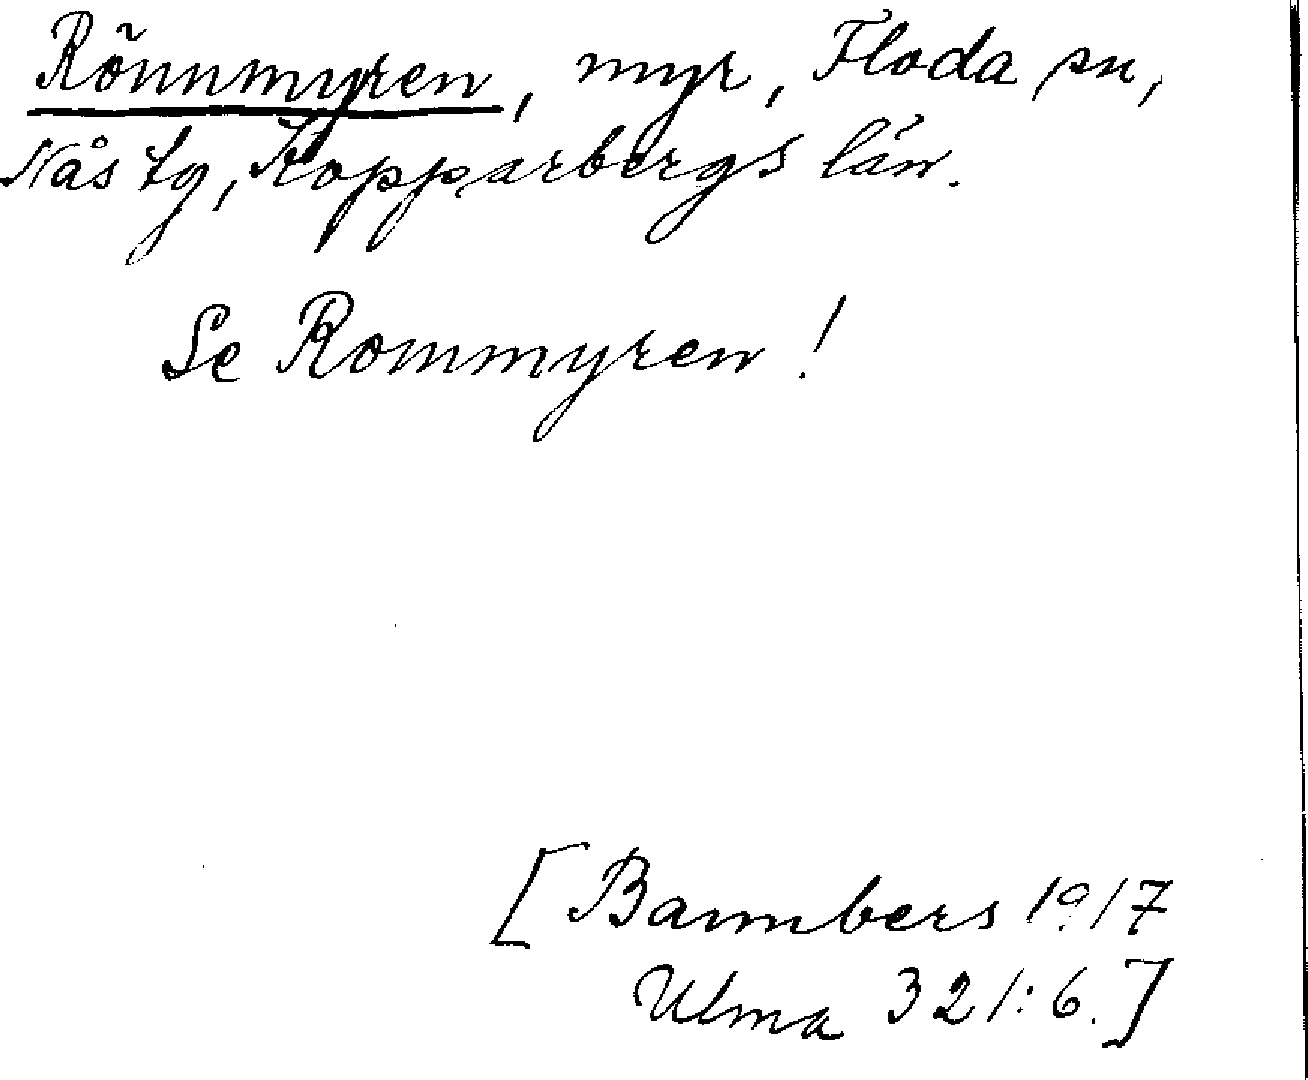 Rönnmyren, myr, Floda sn,
Nås tg, Kopparbergs län.
Se Rommyren!
[Bannbers 1917
Ulma 321:6.]